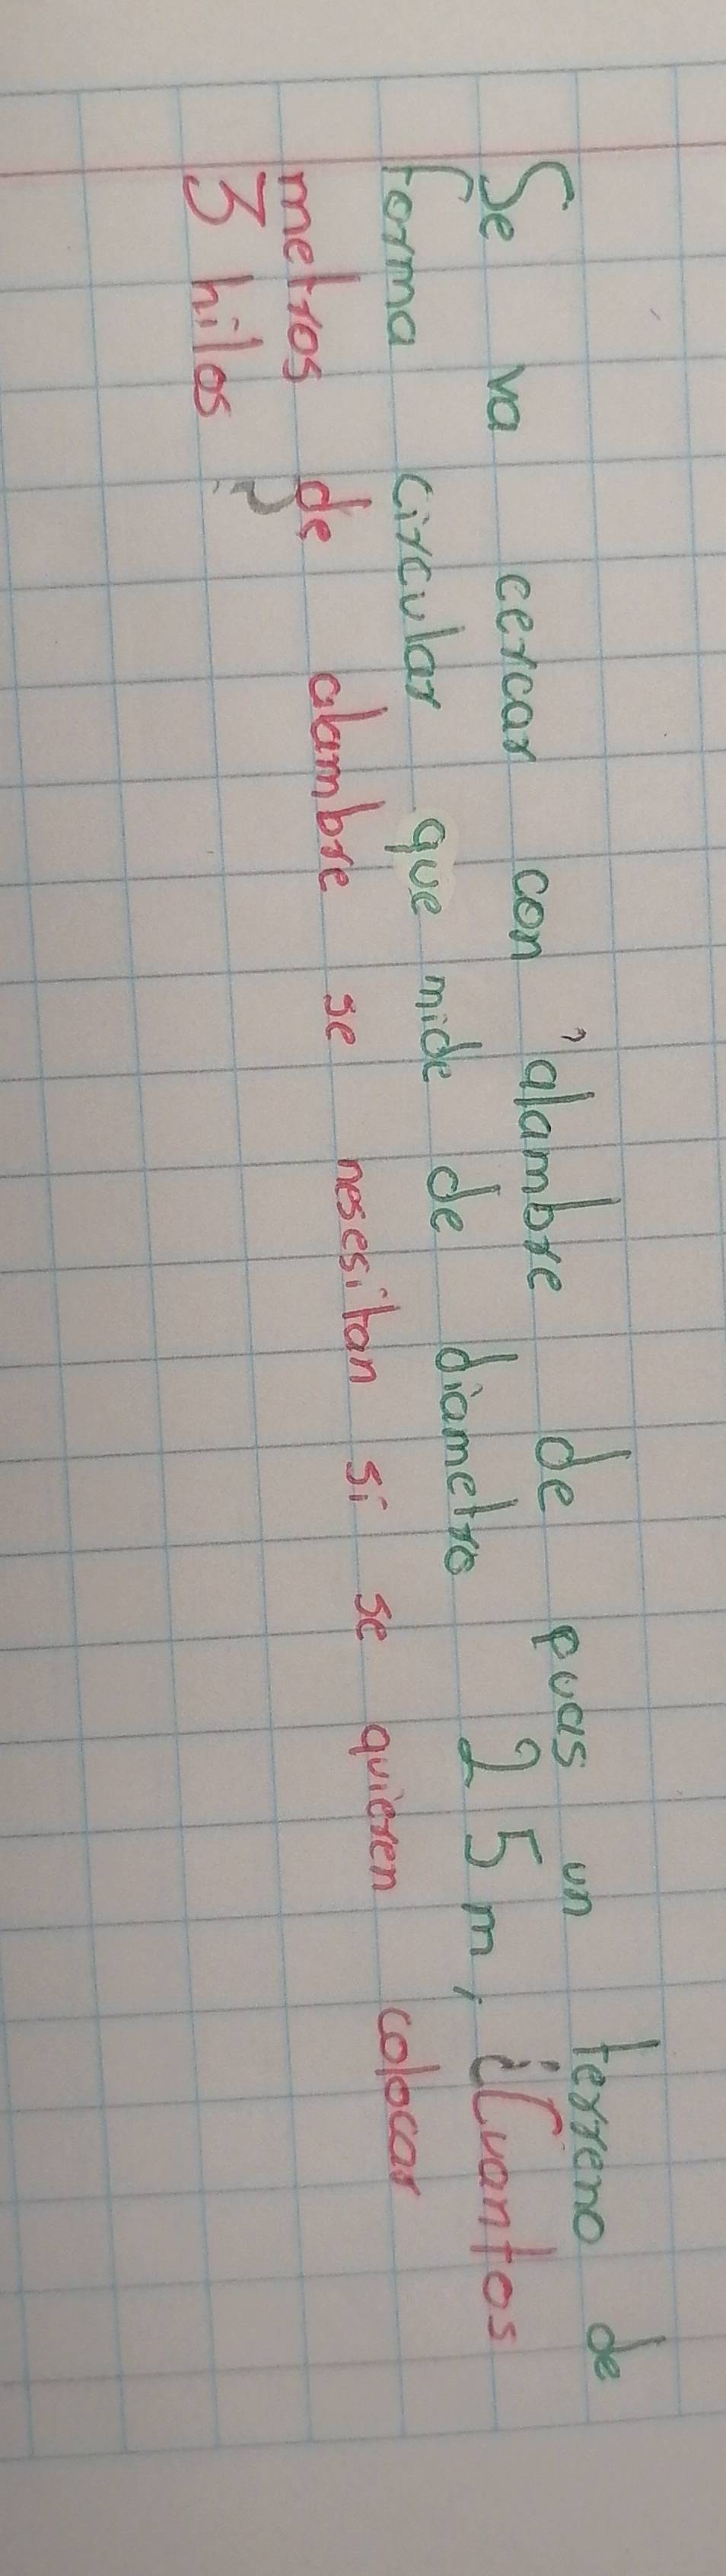 Se va cercar con alambre de puas un terreno de
forma circular que mide de diametro 25m, ¿Cuantos
metros de alambre se nesesitan si se quieren colocar
3 hilos?